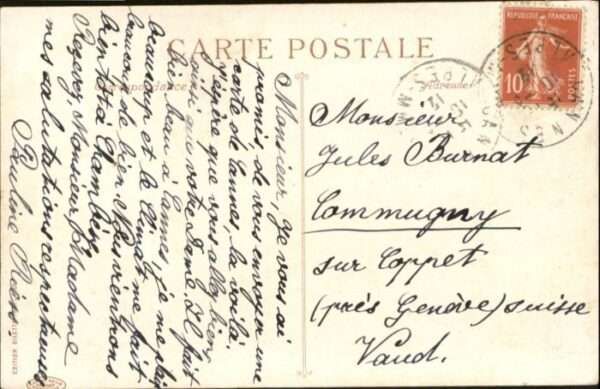 CARTE POSTALE
Correspondance
Adresse
Monsieur, Je vous ai
promis, de vous envoyer une
carte de Canne, la voilà.
J'espère que vous allez bien
ainsi que votre Dame. Il fait
bien beau à Cannes, je me plais
beaucoup et le climat me fait
beaucoup de bien. Nous rentrons
bientôt à Chambésy
Recevez, Monsieur, Madame
mes salutations respectueuses
Pauline
REPUBLIQUE FRANÇAISE
10
POSTES
CANNES
Monsieur
Jules Burnat
Commugny
sur Coppet
(près Genève) Suisse
Vaud.